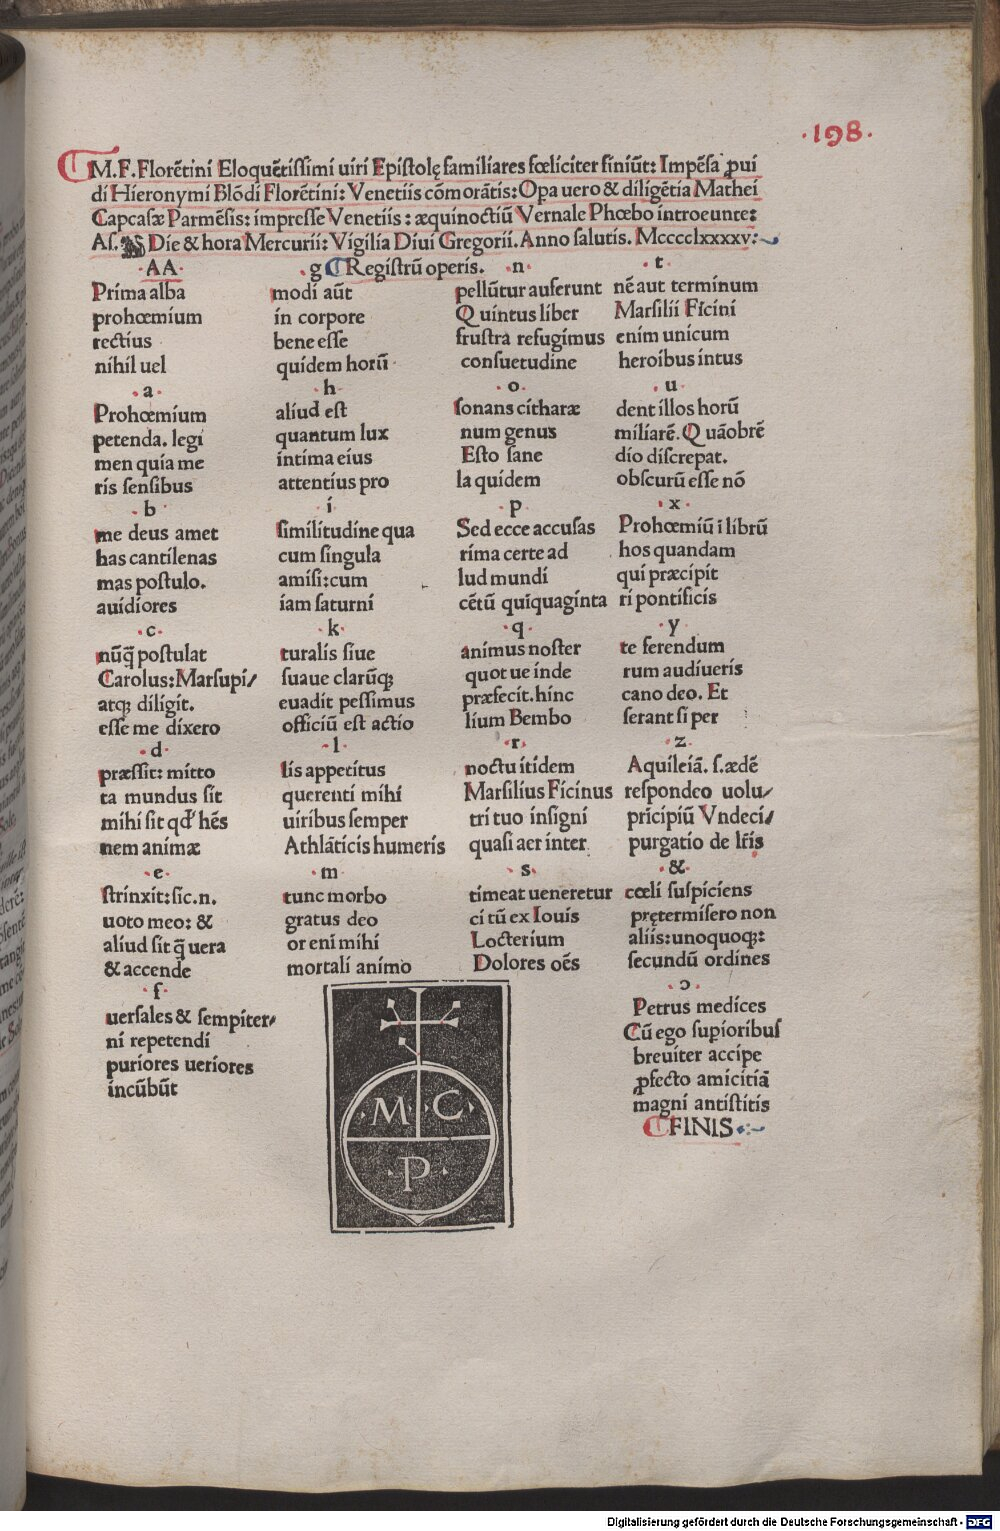 ·198·
M.F.Florētini Eloquētissimi uiri Epistolę familiares fœliciter finiūt: Impēsa ꝓui
di Hieronymi Blōdi Florētini: Venetiis cōmorātis: Opa uero & diligētia Mathei
Capcasæ Parmēsis: impresse Venetiis: æquinoctiū Vernale Phœbo introeunte:
As. Die & hora Mercurii: Vigilia Diui Gregorii. Anno salutis. Mcccclxxxxv:
Registrū operis.
·AA·
Prima alba
prohœmium
rectius
nihil uel
·a·
Prohœmium
petenda. legi
men quia me
ris sensibus
·b·
me deus amet
has cantilenas
mas postulo.
auidiores
·c·
nūq̃ postulat
Carolus: Marsupi/
atqꝫ diligit.
esse me dixero
·d·
præssit: mitto
ta mundus sit
mihi sit qđ hēs
nem animæ
·e·
strinxit: sic.n.
uoto meo: &
aliud sit q̃ uera
& accende
·f·
uersales & sempiter/
ni repetendi
puriores ueriores
incūbūt
·g
modi aūt
in corpore
bene esse
quidem horū
·h·
aliud est
quantum lux
intima eius
attentius pro
·i·
similitudine qua
cum singula
amisi: cum
iam saturni
·k·
turalis siue
suaue clarūqꝫ
euadit pessimus
officiū est actio
·l·
lis appetitus
querenti mihi
uiribus semper
Athlāticis humeris
·m·
tunc morbo
gratus deo
or eni mihi
mortali animo
·n·
pellūtur auferunt
Quintus liber
frustra refugimus
consuetudine
·o·
sonans citharæ
num genus
Esto sane
la quidem
·p·
Sed ecce accusas
rima certe ad
lud mundi
cētū quiquaginta
·q·
animus noster
quot ue inde
præfecit. hinc
lium Bembo
·r·
noctu itidem
Marsilius Ficinus
tri tuo insigni
quasi aer inter
·s·
timeat ueneretur
ci tū ex Iouis
Locterium
Dolores oēs
·t·
nē aut terminum
Marsilii Ficini
enim unicum
heroibus intus
·u·
dent illos horū
miliarē. Quāobrē
dio discrepat.
obscurū esse nō
·x·
Prohœmiū i librū
hos quandam
qui præcipit
ri pontificis
·y·
te ferendum
rum audiueris
cano deo. Et
ferant si per
·z·
Aquileiā. s. ædē
respondeo uolu/
pricipiū Vndeci/
purgatio de lr̄is
·&·
cœli suspiciens
prętermisero non
aliis: unoquoqꝫ:
secundū ordines
·ɔ·
Petrus medices
Cū ego supioribus
breuiter accipe
ꝓfecto amicitiā
magni antistitis
FINIS
·M· ·C·
·P·
Digitalisierung gefördert durch die Deutsche Forschungsgemeinschaft - DFG